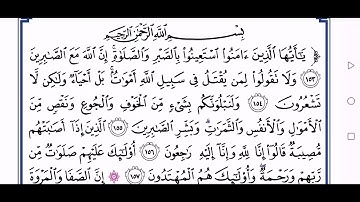 بِسْمِ اللَّهِ الرَّحْمَٰنِ الرَّحِيمِ
يَـٰٓأَيُّهَا ٱلَّذِينَ ءَامَنُوا۟ ٱسْتَعِينُوا۟ بِٱلصَّبْرِ وَٱلصَّلَوٰةِ ۚ إِنَّ ٱللَّهَ مَعَ ٱلصَّـٰبِرِينَ
١٥٣ وَلَا تَقُولُوا۟ لِمَن يُقْتَلُ فِى سَبِيلِ ٱللَّهِ أَمْوَٰتٌۢ ۚ بَلْ أَحْيَآءٌ وَلَـٰكِن لَّا
تَشْعُرُونَ ١٥٤ وَلَنَبْلُوَنَّكُم بِشَىْءٍ مِّنَ ٱلْخَوْفِ وَٱلْجُوعِ وَنَقْصٍ مِّنَ
ٱلْأَمْوَٰلِ وَٱلْأَنفُسِ وَٱلثَّمَرَٰتِ ۗ وَبَشِّرِ ٱلصَّـٰبِرِينَ ١٥٥ ٱلَّذِينَ إِذَآ أَصَـٰبَتْهُم
مُّصِيبَةٌ قَالُوٓا۟ إِنَّا لِلَّهِ وَإِنَّآ إِلَيْهِ رَٰجِعُونَ ١٥٦ أُو۟لَـٰٓئِكَ عَلَيْهِمْ صَلَوَٰتٌ مِّن
رَّبِّهِمْ وَرَحْمَةٌ ۖ وَأُو۟لَـٰٓئِكَ هُمُ ٱلْمُهْتَدُونَ ١٥٧ ۞ إِنَّ ٱلصَّفَا وَٱلْمَرْوَةَ